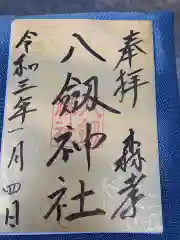 奉拝 森孝
八劔神社
令和三年一月四日